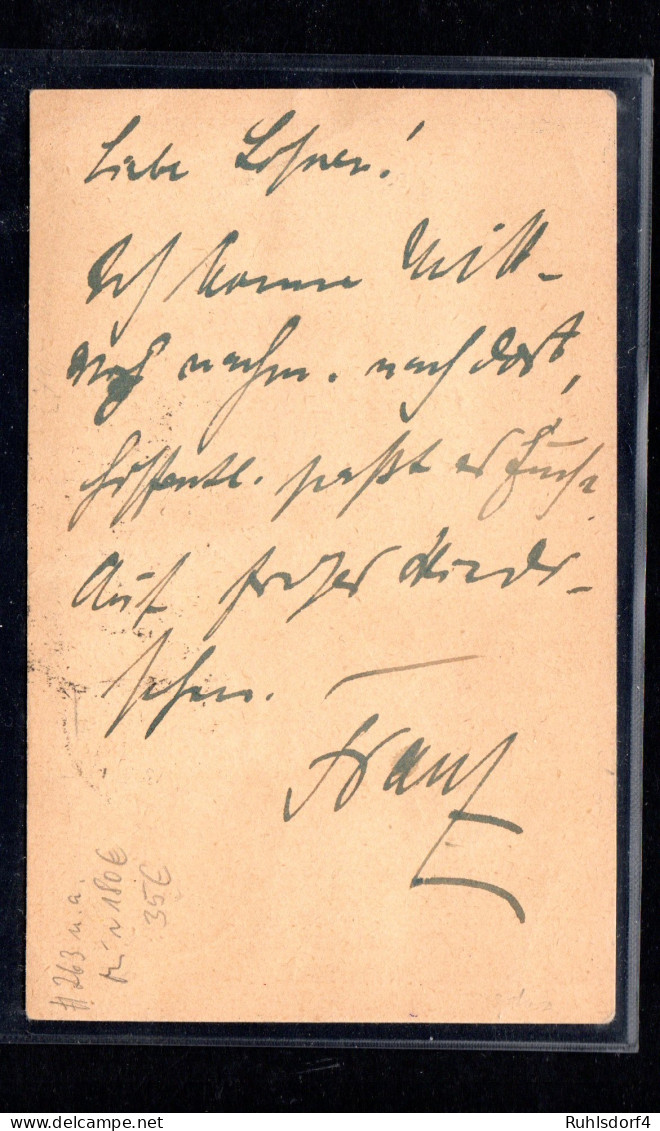 Liebe Lohner!
Ich komme Mitt-
woch nachm. nach dort,
hoffentl. paßt es Euch.
Auf frohes Wieder-
sehen.
Franz
# 263 u.a.
Mi ~ 180 €
35 €
Ruhlsdorf4